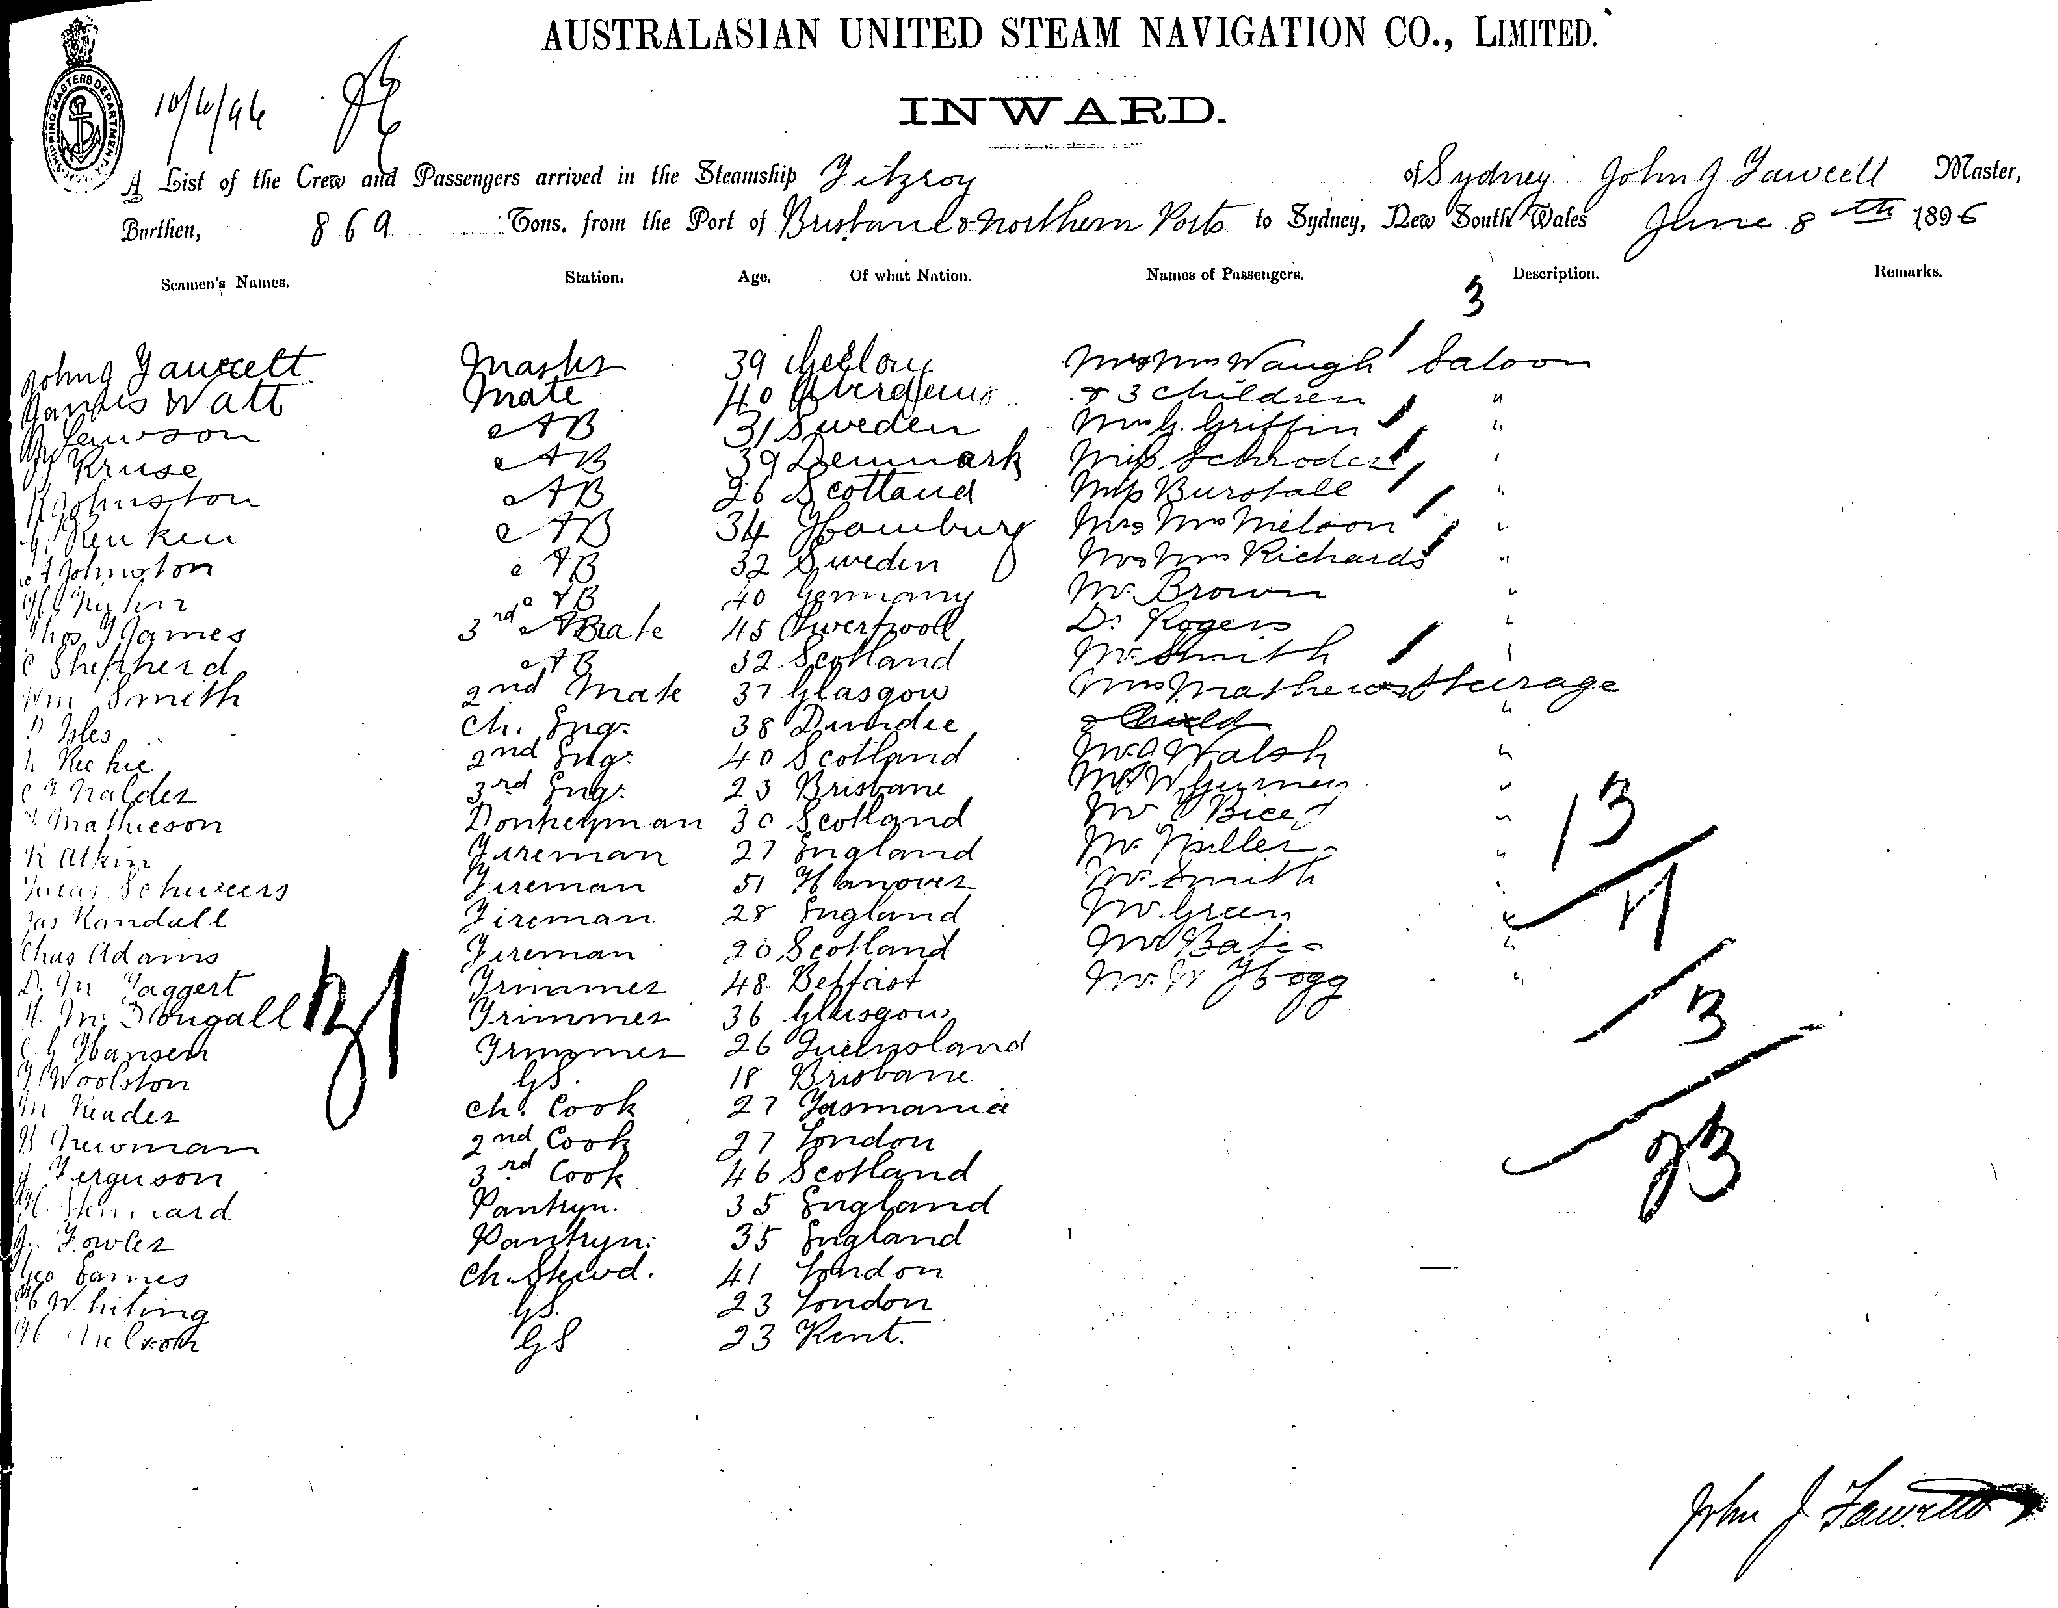 AUSTRALASIAN UNITED STEAM NAVIGATION CO., LIMITED.
INWARD.
SHIPPING MASTERS DEPARTMENT
10/6/96
A List of the Crew and Passengers arrived in the Steamship Fitzroy of Sydney John J Fawcett Master,
Burthen, 869 Tons. from the Port of Brisbane & Northern Ports to Sydney, New South Wales June 8th 1896
Seamen's Names. Station. Age. Of what Nation. Names of Passengers. Description. Remarks.
3
John J Fawcett Master 39 Mr & Mrs Waugh Saloon
James Watt Mate 40 & 3 children "
Lawson AB 31 Sweden Mrs G. Griffin "
Kruse AB 39 Denmark Miss Schroder "
R Johnston AB 26 Scotland Miss Burstall "
Renken AB 34 Hamburg Mr & Mrs Nielson "
A Johnston AB 32 Sweden Mr & Mrs Richards "
AB 40 Germany Mr Brown "
Thos J James 3rd Mate 45 Liverpool Dr Rogers "
C Shepherd AB 32 Scotland Mr Smith "
Wm Smith 2nd Mate 37 Glasgow Mrs Mathews Steerage
D Isles Ch. Engr 38 Dundee & Child "
Richie 2nd Engr 40 Scotland Mr J Walsh "
Nalder 3rd Engr 23 Brisbane Mr W "
Mathieson Donkeyman 30 Scotland Mr "
R Atkin Fireman 27 England Mr Miller "
Schuurs Fireman 51 Hanover Mr Smith "
Jas Randall Fireman 28 England Mr Green "
Chas Adams Fireman 20 Scotland Mr Bates "
D. Mc Taggert Trimmer 48 Belfast Mr. W Hogg "
A. Mc Dougall Trimmer 36 Glasgow
Hansen Trimmer 26 Queensland
Woolston GS 18 Brisbane
M Ch. Cook 27 Tasmania
Newman 2nd Cook 27 London
J Ferguson 3rd Cook 46 Scotland
H. Pantryn. 35 England
Fowler Pantryn. 35 England
Geo Eames Ch. Stewd. 41 London
H Whiting GS. 23 London
H GS 23 Kent.
31
13
3
23
John J Fawcett